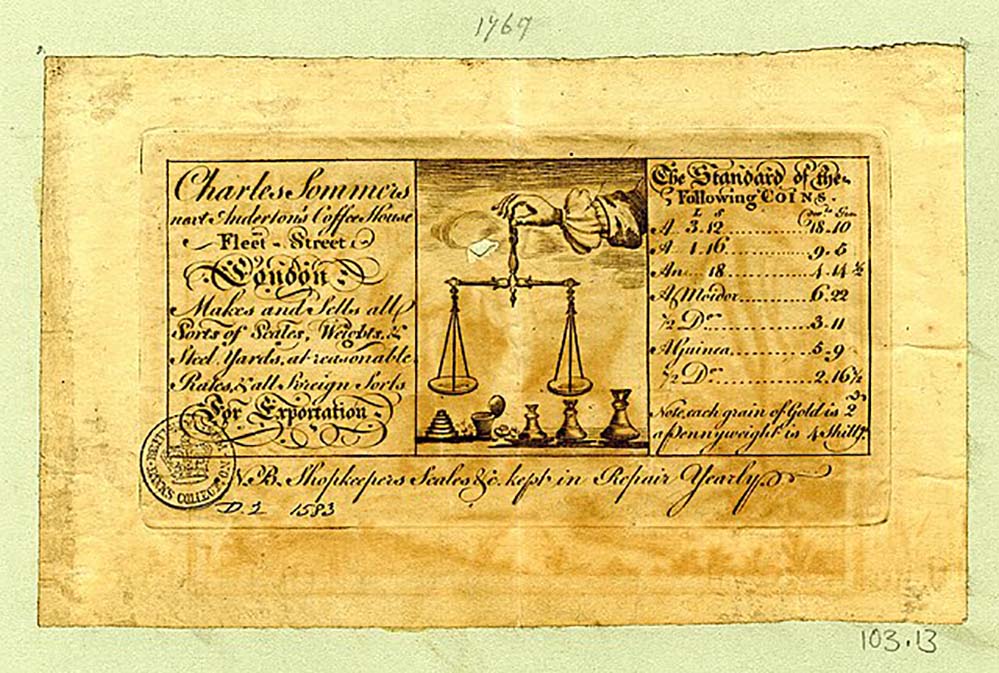 1769
Charles Sommers
next Anderton's Coffee House
Fleet - Street
London
Makes and Sells all
Sorts of Scales, Weights, &
Steel Yards, at reasonable
Rates, & all Foreign Sorts
For Exportation
The Standard of the
Following COINS.
L S Dwts Grs
A 3.12 18.10
A 1.16 9.5
An 18 4.14 ½
A Moidor 6.22
½ Do 3.11
A Guinea 5.9
½ Do 2.16½
Note, each grain of Gold is 2d
a Pennyweight is 4 Shillgs
N.B. Shopkeepers Scales &c. kept in Repair Yearly
BANKS COLLECTION
D.2 1583
103.13